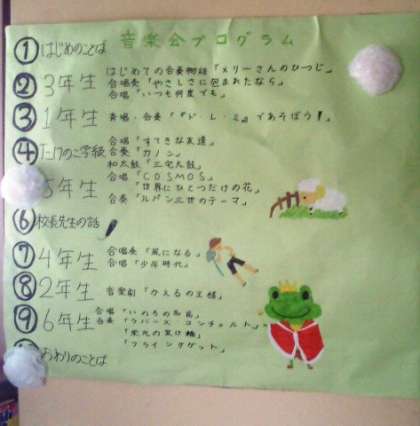 音楽会プログラム
① はじめのことば
② 3年生
はじめての合奏物語「メリーさんのひつじ」
合唱奏「やさしさに包まれたなら」
合唱「いつも何度でも」
③ 1年生
斉唱・合奏「『ド・レ・ミ』であそぼう!」
④ たけのこ学級
合唱「すてきな友達」
合奏「カノン」
和太鼓「三宅太鼓」
5年生
合唱「COSMOS」
「世界にひとつだけの花」
合奏「ルパン三世のテーマ」
⑥ 校長先生の話
⑦ 4年生
合唱奏「風になる」
合唱「少年時代」
⑧ 2年生
音楽劇「かえるの王様」
⑨ 6年生
合唱「いのちの
合奏「ラバース コンチェルト」
「栄光の架け橋」
「フライングゲット」
おわりのことば